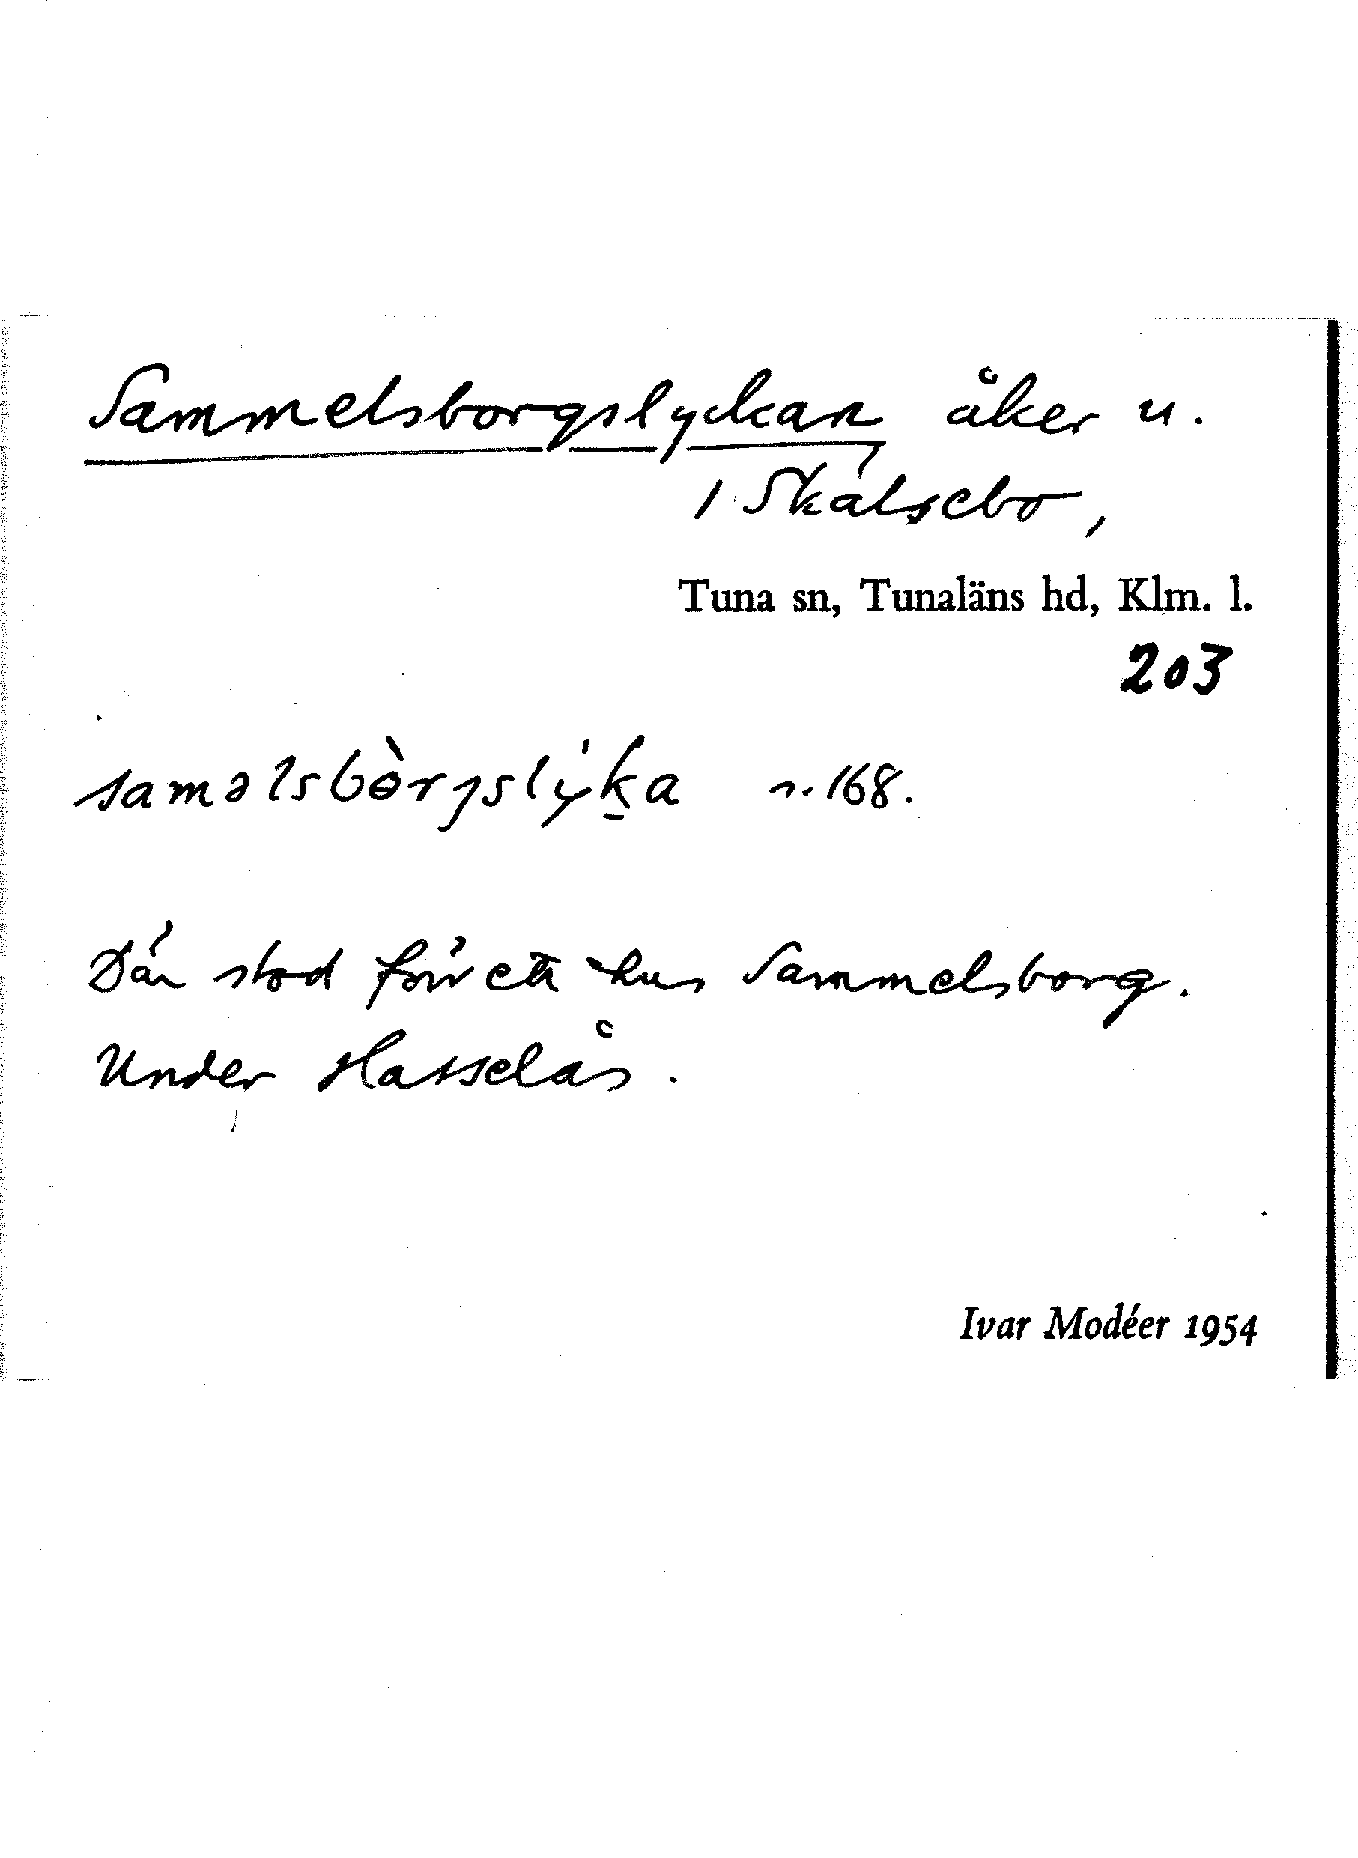 Sammelsborgslyckan åker u.
1 Skälsebo,
Tuna sn, Tunaläns hd, Klm. l.
203
saməlsbòrgslyka n. 168.
Där stod förr ett hus Sammelsborg.
Under Hasselås.
Ivar Modéer 1954